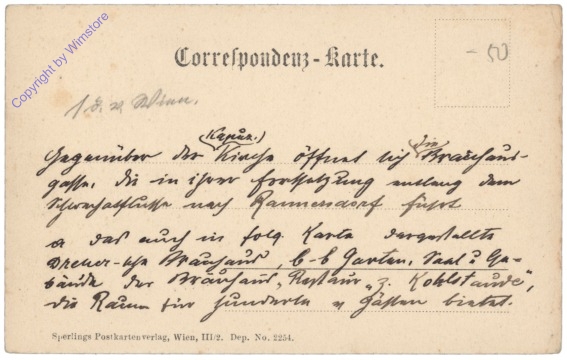 Copyright by Wimstore
Correspondenz-Karte.
- 50
1 d. v. Wien.
(Kapuz.) die
Gegenüber der Kirche öffnet sich Brauhaus-
gasse, die in ihrer Fortsetzung entlang dem
Schwechatflusse nach Rannersdorf führt
a das auch in folg. Karte dargestellte
Dreher-sche Brauhaus, b-b Garten, Saal u Ge-
bäude der Brauhaus Restaur „z. Kohlstaude",
die Raum für hunderte v Gästen bietet.
Sperlings Postkartenverlag, Wien, III/2. Dep. No. 2254.